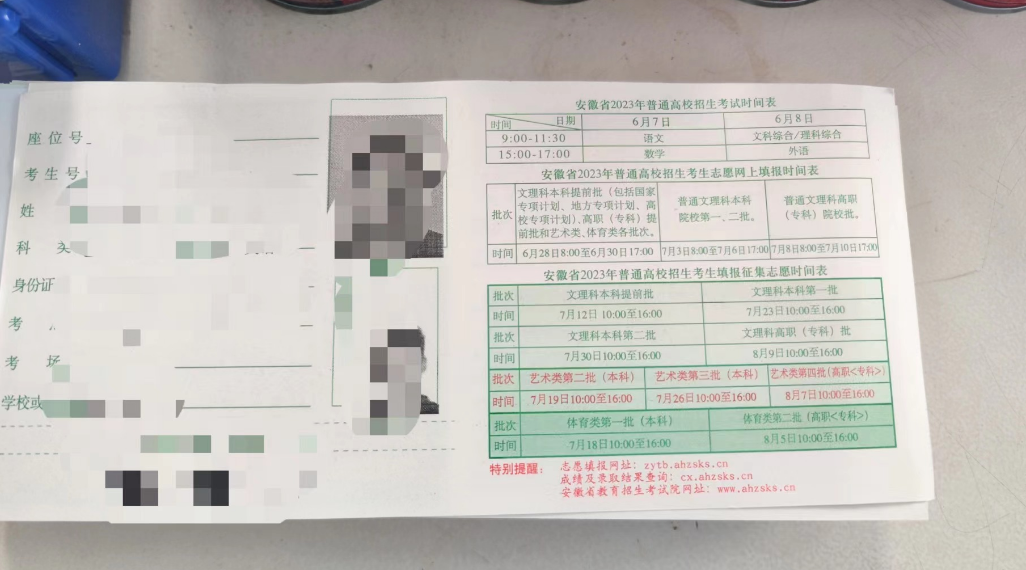 座位号
考生号
姓
科 类
身份证
考
考 场
学校或
安徽省2023年普通高校招生考试时间表
时间 日期 6月7日 6月8日
9:00-11:30 语文 文科综合/理科综合
15:00-17:00 数学 外语
安徽省2023年普通高校招生考生志愿网上填报时间表
批次
文理科本科提前批（包括国家
专项计划、地方专项计划、高
校专项计划）、高职（专科）提
前批和艺术类、体育类各批次。
普通文理科本科
院校第一、二批。
普通文理科高职
（专科）院校批。
时间 6月28日8:00至6月30日17:00 7月3日8:00至7月6日17:00 7月8日8:00至7月10日17:00
安徽省2023年普通高校招生考生填报征集志愿时间表
批次 文理科本科提前批 文理科本科第一批
时间 7月12日 10:00至16:00 7月23日10:00至16:00
批次 文理科本科第二批 文理科高职（专科）批
时间 7月30日10:00至16:00 8月9日10:00至16:00
批次 艺术类第二批（本科） 艺术类第三批（本科） 艺术类第四批(高职<专科>)
时间 7月19日10:00至16:00 7月26日10:00至16:00 8月7日10:00至16:00
批次 体育类第一批（本科） 体育类第二批（高职<专科>）
时间 7月18日10:00至16:00 8月5日10:00至16:00
特别提醒： 志愿填报网址：zytb.ahzsks.cn
成绩及录取结果查询：cx.ahzsks.cn
安徽省教育招生考试院网址：www.ahzsks.cn